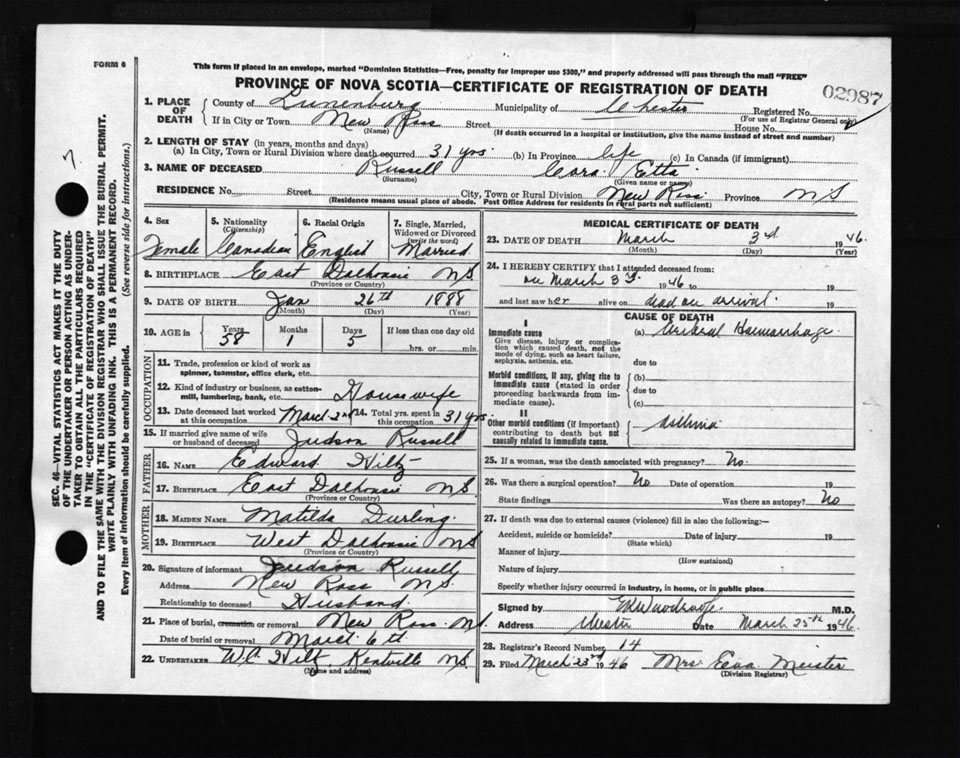 FORM 6
This form if placed in an envelope, marked "Dominion Statistics—Free, penalty for improper use $300," and properly addressed will pass through the mail "FREE"
PROVINCE OF NOVA SCOTIA—CERTIFICATE OF REGISTRATION OF DEATH
02987
1. PLACE OF DEATH
County of Lunenburg Municipality of Chester Registered No.
(For use of Registrar General only)
If in City or Town New Ross Street House No.
(Name) (If death occurred in a hospital or institution, give the name instead of street and number)
2. LENGTH OF STAY (in years, months and days)
(a) In City, Town or Rural Division where death occurred 31 yrs. (b) In Province life (c) In Canada (if immigrant)
3. NAME OF DECEASED Russell Cora Etta
(Surname) (Given name or names)
RESIDENCE No. Street City, Town or Rural Division New Ross Province N S
(Residence means usual place of abode. Post Office Address for residents in rural parts not sufficient)
4. Sex Female
5. Nationality (Citizenship) Canadian
6. Racial Origin English
7. Single, Married, Widowed or Divorced (write the word) Married
8. BIRTHPLACE East Dalhousie N S
(Province or Country)
9. DATE OF BIRTH Jan 26th 1888
(Month) (Day) (Year)
10. AGE in Years 58 Months 1 Days 5 If less than one day old
hrs. or min.
OCCUPATION
11. Trade, profession or kind of work as spinner, teamster, office clerk, etc.
12. Kind of industry or business, as cotton-mill, lumbering, bank, etc. Housewife
13. Date deceased last worked at this occupation March 2nd 14. Total yrs. spent in this occupation 31 yrs.
15. If married give name of wife or husband of deceased Judson Russell
FATHER
16. NAME Edward Hiltz
17. BIRTHPLACE East Dalhousie N S
(Province or Country)
MOTHER
18. MAIDEN NAME Matilda Durling
19. BIRTHPLACE West Dalhousie N S
(Province or Country)
20. Signature of informant Judson Russell
Address New Ross N S.
Relationship to deceased Husband.
21. Place of burial, cremation or removal New Ross. N S.
Date of burial or removal March 6th
22. UNDERTAKER W.A. Hiltz, Kentville N S.
(Name and address)
MEDICAL CERTIFICATE OF DEATH
23. DATE OF DEATH March 3rd 1946.
(Month) (Day) (Year)
24. I HEREBY CERTIFY that I attended deceased from:
on March 3rd. 1946 to 19
and last saw her alive on dead on arrival. 19
CAUSE OF DEATH
I
Immediate cause
Give disease, injury or complication which caused death, not the mode of dying, such as heart failure, asphyxia, asthenia, etc.
(a) Cerebral Haemorrhage.
due to
Morbid conditions, if any, giving rise to immediate cause (stated in order proceeding backwards from immediate cause).
(b)
due to
(c)
II
Other morbid conditions (if important) contributing to death but not causally related to immediate cause.
asthma
25. If a woman, was the death associated with pregnancy? No.
26. Was there a surgical operation? No Date of operation 19
State findings Was there an autopsy? No
27. If death was due to external causes (violence) fill in also the following:—
Accident, suicide or homicide? Date of injury 19
(State which)
Manner of injury
(How sustained)
Nature of injury
Specify whether injury occurred in industry, in home, or in public place
Signed by M.D.
Address Chester Date March 25th 1946.
28. Registrar's Record Number 14
29. Filed March 23rd 1946 Mrs Eva. Meister
(Division Registrar)
SEC. 46—VITAL STATISTICS ACT MAKES IT THE DUTY
OF THE UNDERTAKER OR PERSON ACTING AS UNDER-
TAKER TO OBTAIN ALL THE PARTICULARS REQUIRED
IN THE "CERTIFICATE OF REGISTRATION OF DEATH"
AND TO FILE THE SAME WITH THE DIVISION REGISTRAR WHO SHALL ISSUE THE BURIAL PERMIT.
WRITE PLAINLY WITH UNFADING INK. THIS IS A PERMANENT RECORD.
Every item of information should be carefully supplied. (See reverse side for instructions.)